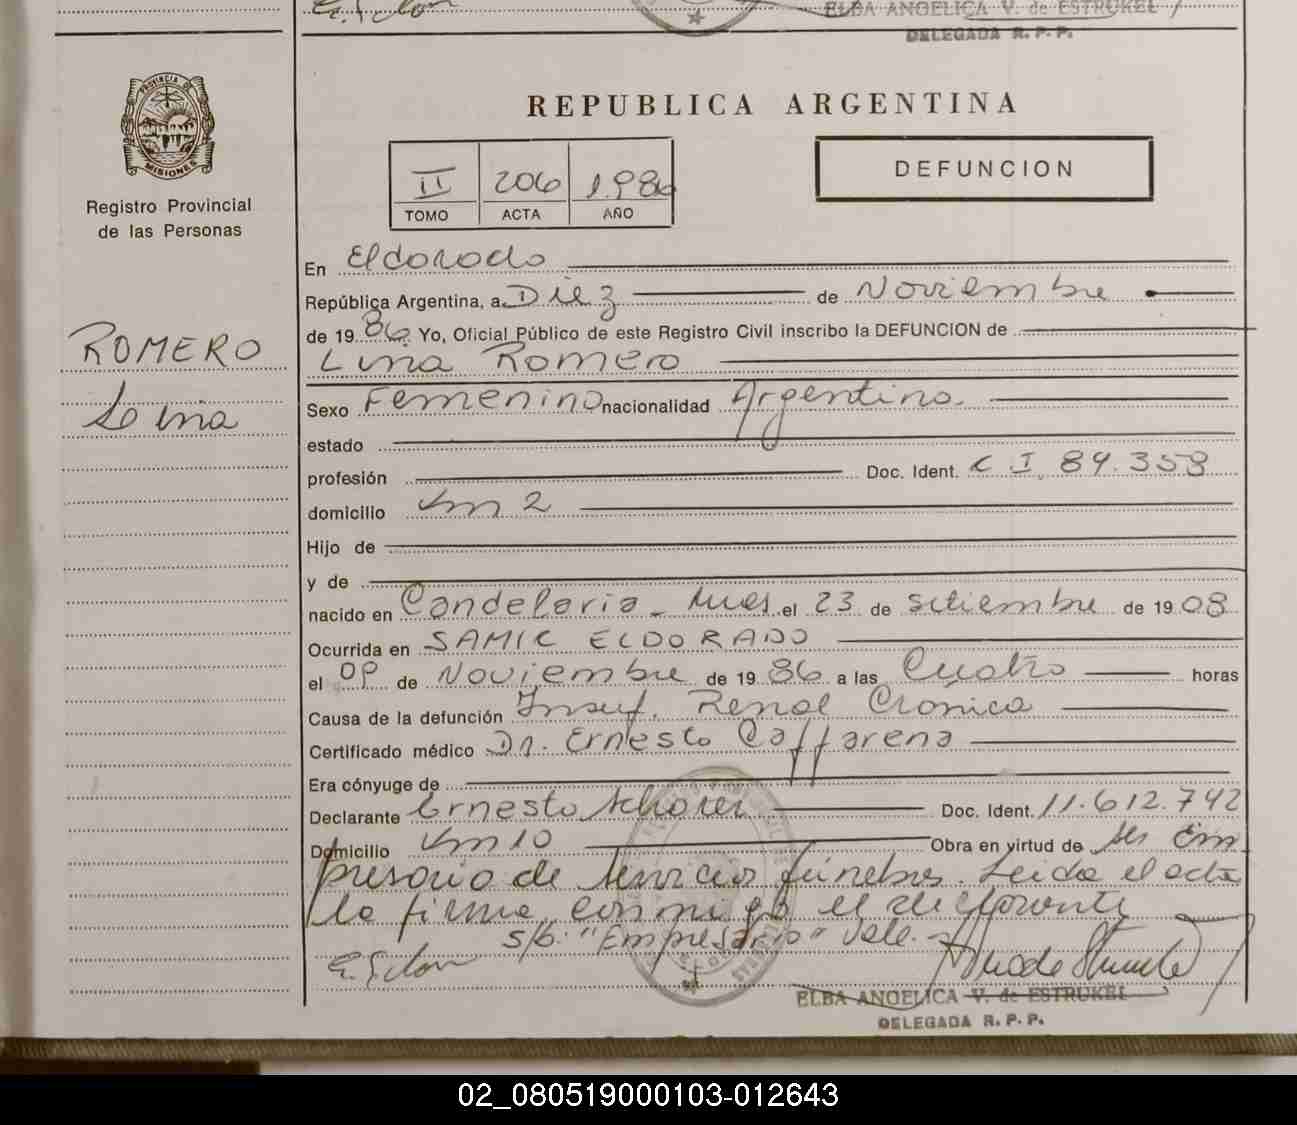 ELBA ANGELICA V. de ESTRUKEL
DELEGADA R. P. P.
PROVINCIA DE
MISIONES
Registro Provincial
de las Personas
REPUBLICA ARGENTINA
II 206 1.986
TOMO ACTA AÑO
DEFUNCION
ROMERO
Lina
En Eldorado
República Argentina, a Diez de Noviembre
de 1986. Yo, Oficial Público de este Registro Civil inscribo la DEFUNCION de
Lina Romero
Sexo Femenino nacionalidad Argentina.
estado
profesión Doc. Ident. C I. 89.358
domicilio Km 2
Hijo de
y de
nacido en Candelaria - Mnes el 23 de Setiembre de 1908
Ocurrida en SAMIC ELDORADO
el 09 de Noviembre de 1986 a las Cuatro horas
Causa de la defunción Insuf. Renal Crónica
Certificado médico Dr. Ernesto Caffarena
Era cónyuge de
Declarante Ernesto Doc. Ident. 11.612.742
Domicilio Km 10 Obra en virtud de ser Em
presario de servicios fúnebres. Leida el acta
la firma conmigo el declarante
s/b. "Empresario" Vale.
ELBA ANGELICA V. de ESTRUKEL
DELEGADA R. P. P.
02_080519000103-012643